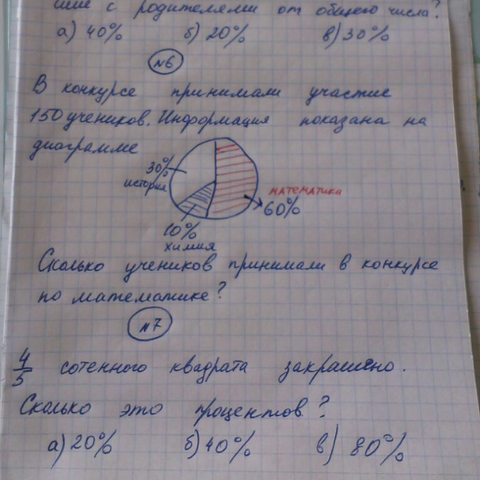 с родителями от общего числа?
а) 40% б) 20% в) 30%
№6
В конкурсе принимали участие
150 учеников. Информация показана на
диаграмме
30%
история
математика
60%
10%
химия
Сколько учеников принимали в конкурсе
по математике?
№7
4/5 сотенного квадрата закрашено.
Сколько это процентов?
а) 20% б) 40% в) 80%